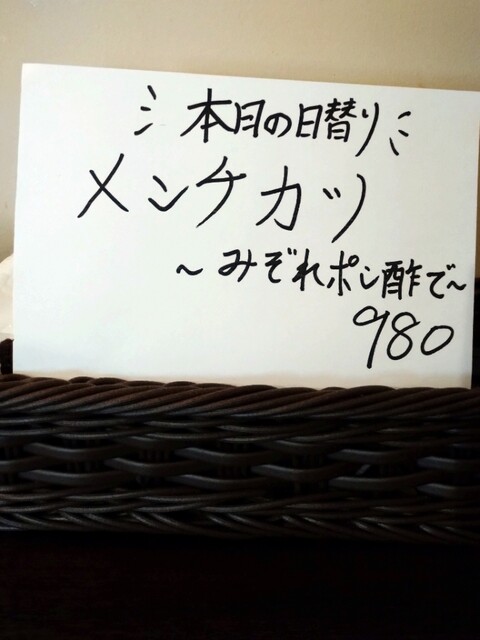 本日の日替り
メンチカツ
～みぞれポン酢で～
980